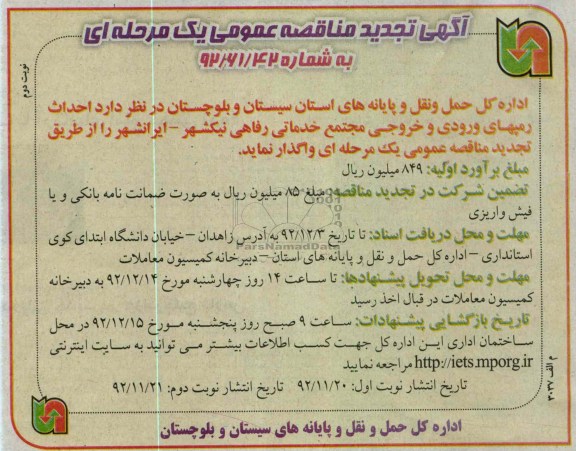 آگهی تجدید مناقصه عمومی یک مرحله ای
به شماره ۹۲/۶۱/۴۲
نوبت دوم
اداره کل حمل ونقل و پایانه های استان سیستان و بلوچستان در نظر دارد احداث
رمپهای ورودی و خروجی مجتمع خدماتی رفاهی نیکشهر –ایرانشهر را از طریق
تجدید مناقصه عمومی یک مرحله ای واگذار نماید.
مبلغ برآورد اولیه: ۸۴۹ میلیون ریال
تضمین شرکت در تجدید مناقصه: مبلغ ۸۵ میلیون ریال به صورت ضمانت نامه بانکی و یا
فیش واریزی
مهلت و محل دریافت اسناد: تا تاریخ ۹۲/۱۲/۳ به آدرس زاهدان –خیابان دانشگاه ابتدای کوی
استانداری – اداره کل حمل و نقل و پایانه های استان – دبیرخانه کمیسیون معاملات
مهلت و محل تحویل پیشنهادها: تا ساعت ۱۴ روز چهارشنبه مورخ ۹۲/۱۲/۱۴ به دبیرخانه
کمیسیون معاملات در قبال اخذ رسید
تاریخ بازگشایی پیشنهادات: ساعت ۹ صبح روز پنجشنبه مورخ ۹۲/۱۲/۱۵ در محل
ساختمان اداری این اداره کل جهت کسب اطلاعات بیشتر می توانید به سایت اینترنتی
http://iets.mporg.ir مراجعه نمایید
تاریخ انتشار نوبت اول: ۹۲/۱۱/۲۰ تاریخ انتشار نوبت دوم: ۹۲/۱۱/۲۱
اداره کل حمل و نقل و پایانه های سیستان و بلوچستان
ParsNamadData